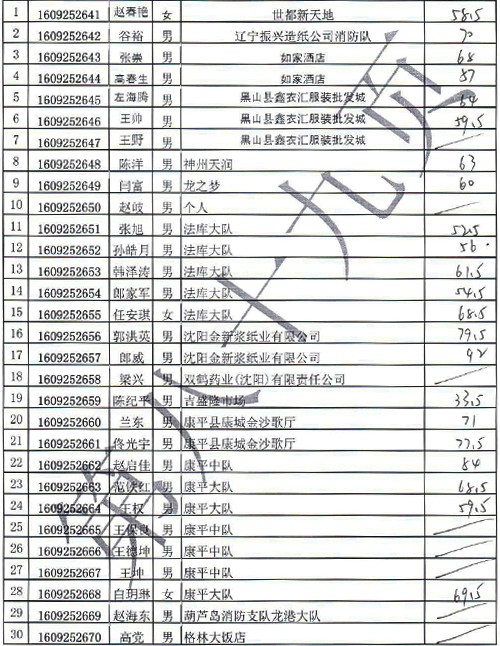 1 1609252641 赵春艳 女 世都新天地 58.5
2 1609252642 谷裕 男 辽宁振兴造纸公司消防队 70
3 1609252643 张崇 男 如家酒店 68
4 1609252644 高春生 男 如家酒店 87
5 1609252645 左海腾 男 黑山县鑫衣汇服装批发城 64
6 1609252646 王帅 男 黑山县鑫衣汇服装批发城 59.5
7 1609252647 王野 男 黑山县鑫衣汇服装批发城
8 1609252648 陈洋 男 神州天润 63
9 1609252649 闫富 男 龙之梦 60
10 1609252650 赵岐 男 个人
11 1609252651 张旭 男 法库大队 52.5
12 1609252652 孙皓月 男 法库大队 56
13 1609252653 韩泽涛 男 法库大队 61.5
14 1609252654 郎家军 男 法库大队 54.5
15 1609252655 任安琪 女 法库大队 68.5
16 1609252656 郭洪英 男 沈阳金新浆纸业有限公司 79.5
17 1609252657 郎威 男 沈阳金新浆纸业有限公司 92
18 1609252658 梁兴 男 双鹤药业(沈阳)有限责任公司
19 1609252659 陈纪平 男 吉盛隆市场 33.5
20 1609252660 兰东 男 康平县康城金沙歌厅 71
21 1609252661 佟光宇 男 康平县康城金沙歌厅 77.5
22 1609252662 赵启佳 男 康平中队 84
23 1609252663 范铁红 男 康平大队 68.5
24 1609252664 王权 男 康平大队 59.5
25 1609252665 王保 男 康平中队
26 1609252666 王德坤 男 康平中队
27 1609252667 王坤 男 康平中队
28 1609252668 白玥琳 女 康平大队 69.5
29 1609252669 赵海东 男 葫芦岛消防支队龙港大队
30 1609252670 高党 男 格林大饭店
第八十九页